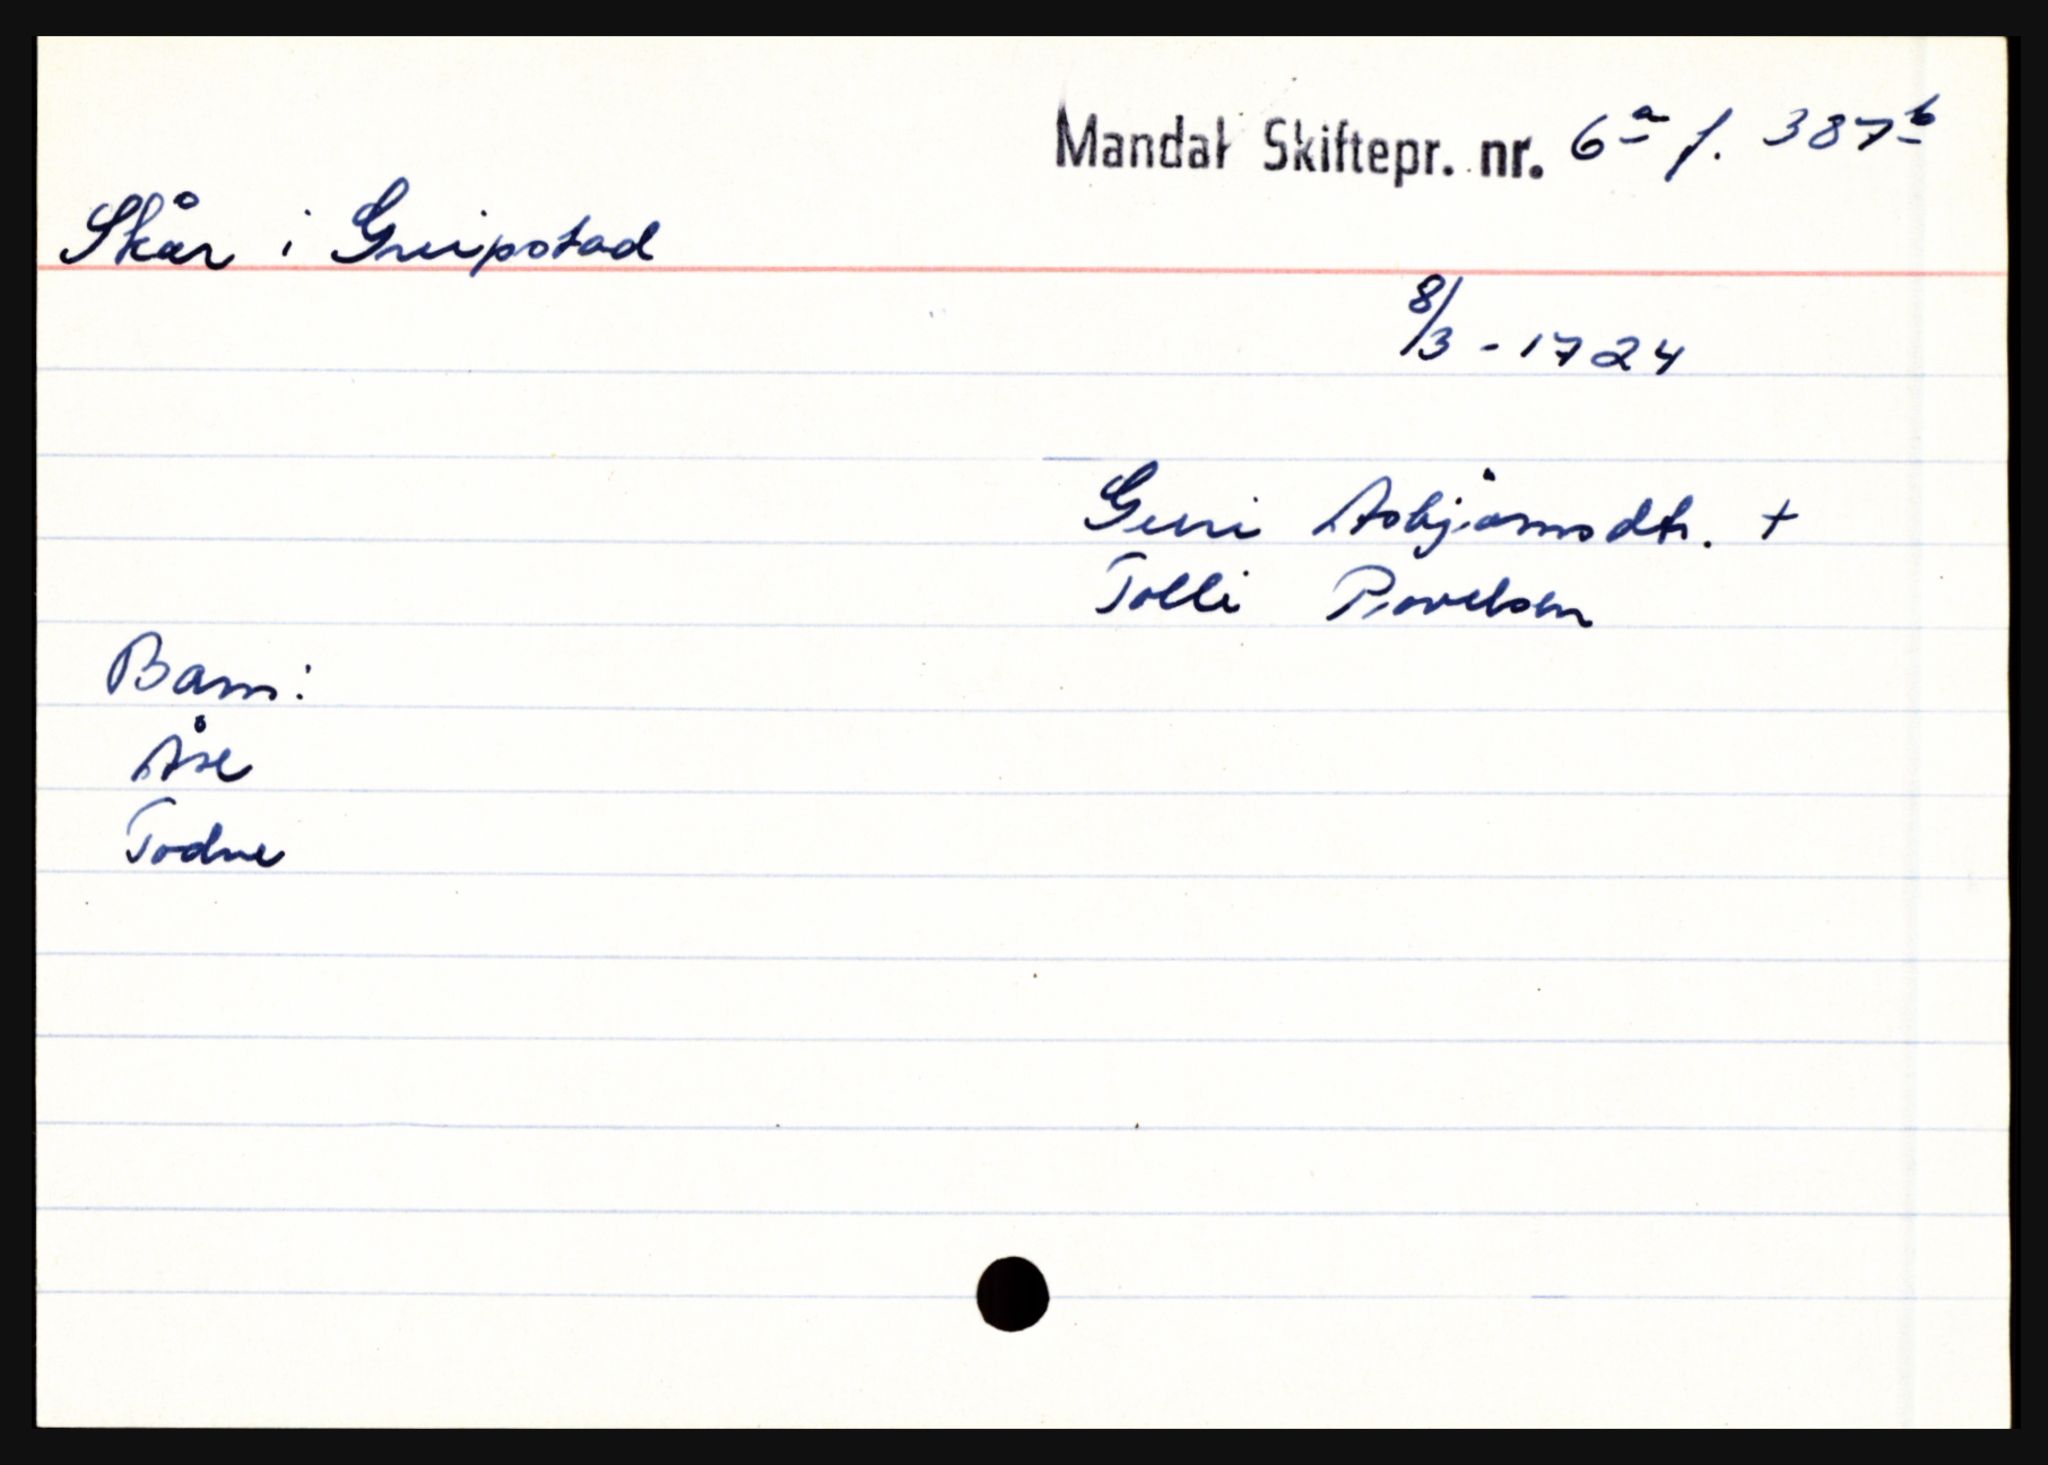 Mandal Skiftepr. nr. 6a f. 387b
Skår i Greipstad
8/3 - 1724
Guri Asbjörnsdtr. +
Tolli Povelsen
Barn:
Åse
Todne